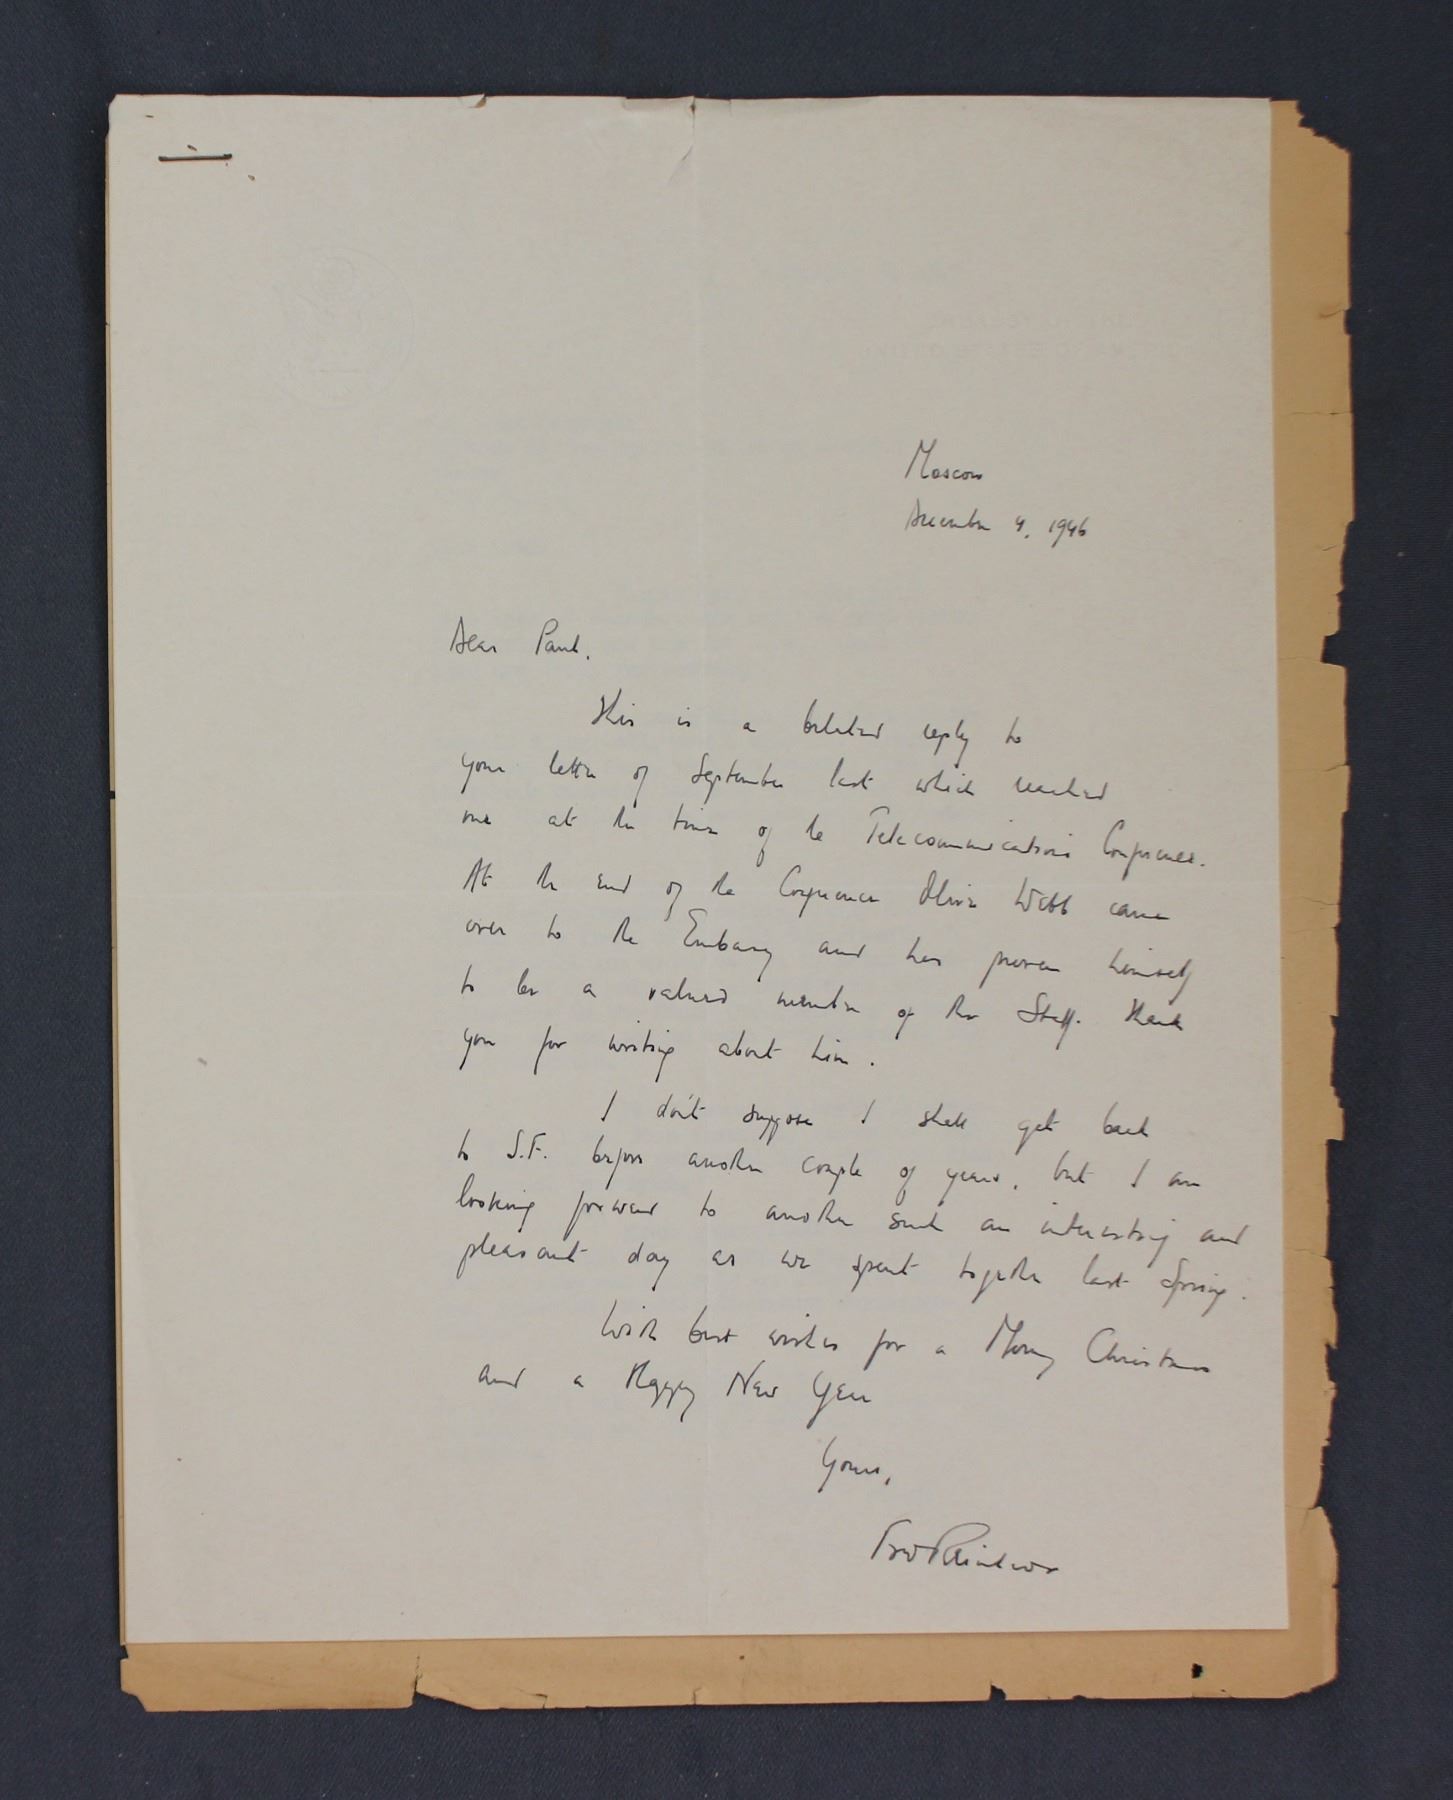 Moscow
December 4, 1946
Dear Paul,
This is a belated reply to
your letter of September last which reached
me at the time of the Telecommunications Conference.
At the end of the Conference Oliver Webb came
over to the Embassy and has proven himself
to be a valued member of the Staff. Thank
you for writing about him.
I don't suppose I shall get back
to S.F. before another couple of years, but I am
looking forward to another such an interesting and
pleasant day as we spent together last Spring.
With best wishes for a Merry Christmas
and a Happy New Year
Yours,